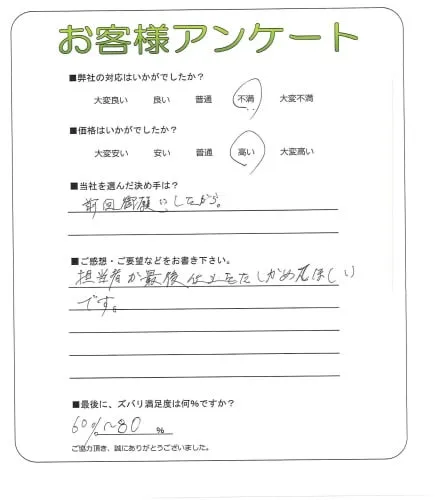 お客様アンケート
■弊社の対応はいかがでしたか？
大変良い 良い 普通 不満 大変不満
■価格はいかがでしたか？
大変安い 安い 普通 高い 大変高い
■当社を選んだ決め手は？
前回御願いしたから。
■ご感想・ご要望などをお書き下さい。
担当者が最後仕上をたしかめてほしい
です。
■最後に、ズバリ満足度は何％ですか？
60%〜80 %
ご協力頂き、誠にありがとうございました。